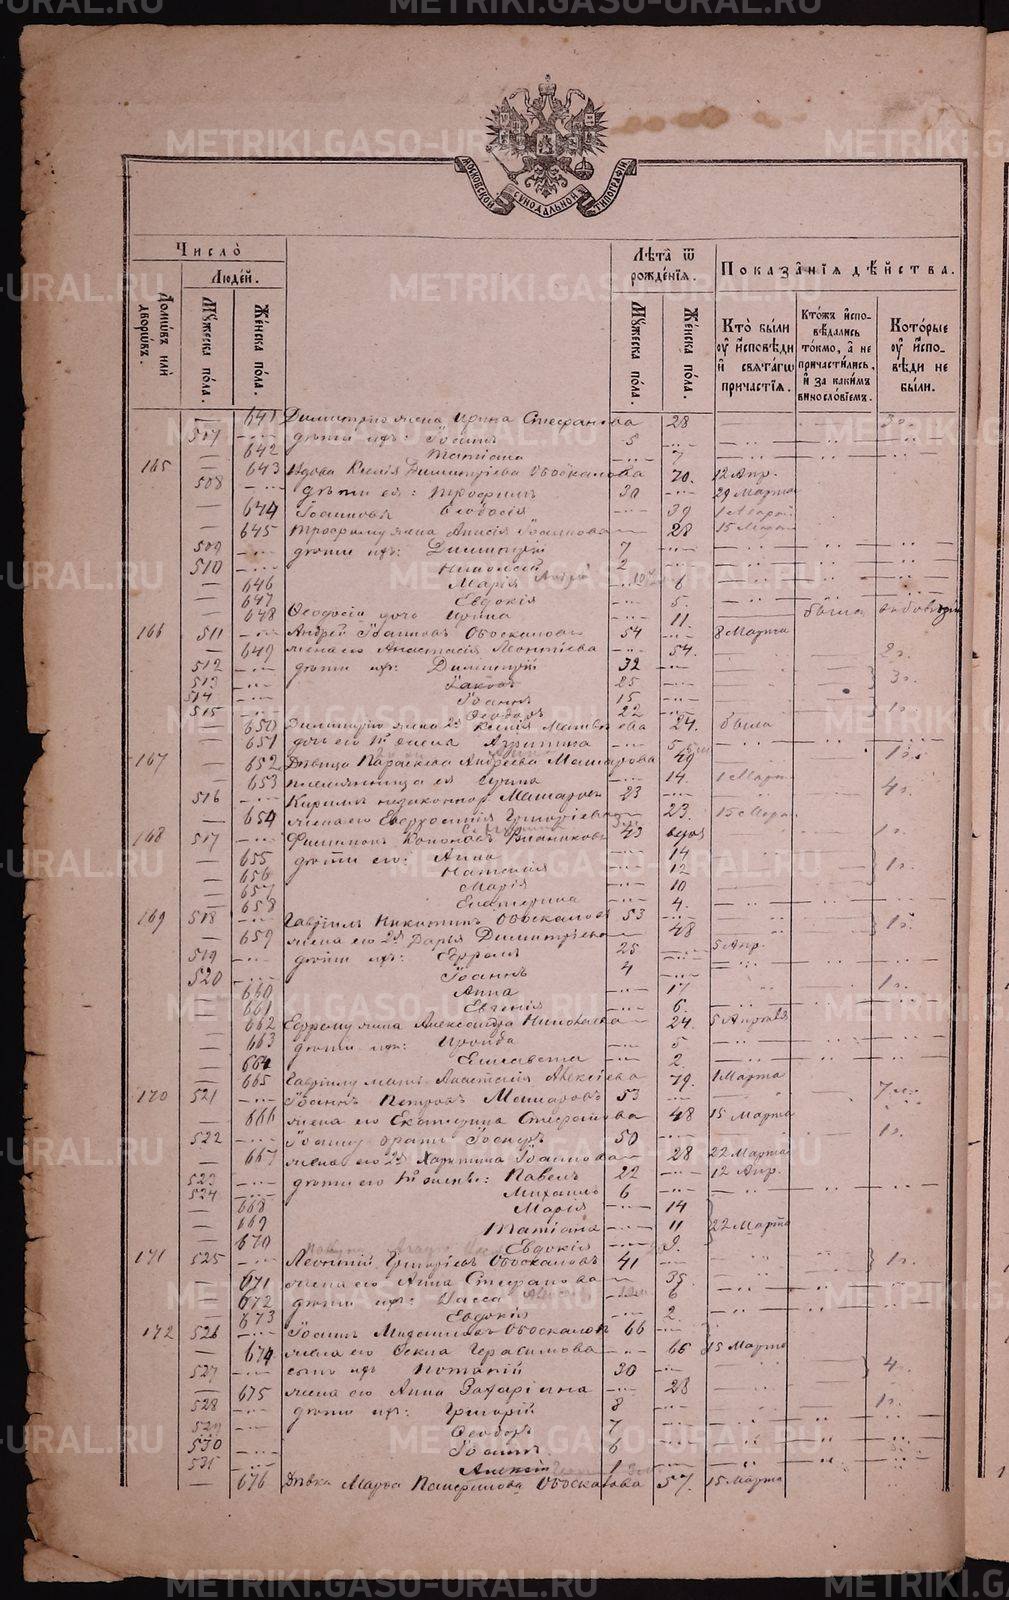 METRIKI.GASO-URAL.RU
МОСКОВСКОЙ СѴНОДАЛЬНОЙ ТИПОГРАФІИ
Число̀
Людéй.
Домѡ́въ илѝ дворѡ́въ.
Мꙋ́жеска по́ла.
Же́нска по́ла.
Лѣ́та ѿ рождéнїя.
Мꙋ́жеска по́ла.
Же́нска по́ла.
Показа̂нїя дѣ́йства.
Кто̀ бы́ли ᲂу҆ и҆сповѣди и҆ свята́гѡ причастїя.
Кто́жъ и҆сповѣдались то́кмо, а҆ не причасти́лись, и҆ за каки́мъ винословїемъ.
Кото́рые ᲂу҆ и҆сповѣди не бы́ли.
— 641 Димитрію жена Ирина Стефанова 28
507 дѣти ихъ: Іоаннъ 5
— 642 Татіана 7
165 — 643 Вдова Ксенія Димитріева Обоскалова 70. 12 Апр.
508 дѣти ея: Трофимъ 30 29 Марта
— 644 Іоанновъ Ѳеодосія 39 1 Март
— 645 Трофиму жена Анисія Іоаннова 28 15 Март
509 дѣти ихъ: Димитрій 7
510 Николай 2
— 646 Марія 6
— 647 Евдокія 5.
— 648 Ѳеодосіи дочь Ирина 11. была
166 511 Андрей Іоанновъ Обоскаловъ 54 8 Марта
— 649 жена его Анастасія Леонтіева 54. 2 г.
512 дѣти ихъ: Димитрій 32
513 Іаковъ 25 3 г.
514 Іоаннъ 15
515 Ѳеодоръ 22 1 г.
— 650 Димитрію жена 2я Ксенія Матвѣева 24. была
— 651 дочь его 1й жены Агрипина 5
167 — 652 Дѣвица Параскева Андреева Машарова 49
— 653 племянница ея Ирина 14. 1 Март
516 Кириллъ незаконнор. Машаровъ 23 4 г.
— 654 жена его Евфросинія Григоріева 23. 15 Март
168 517 Филимонъ Кононовъ 43 вдов 1 г.
— 655 дѣти его: Анна 14
— 656 Наталія 12 1 г.
— 657 Марія 10
— 658 Екатерина 4.
169 518 Гавріилъ Никитинъ Обоскаловъ 53
— 659 жена его 2я Дарья Димитріева 48 5 Апр.
519 дѣти ихъ: Ефремъ 25
520 Іоаннъ 4
— 660 Анна 17 1 г.
— 661 Евгенія 6.
— 662 Ефрему жена Александра Николаева 24. 5 Апрѣля
— 663 дѣти ихъ: 5
— 664 Елисавета 2.
— 665 Гавріилу мать Анастасія Алексіева 79. 1 Марта
170 521 Іоаннъ Петровъ Машаровъ 53
— 666 жена его Екатерина Стефанова 48 15 Марта
522 Іоанну братъ Іосифъ 50 1 г.
— 667 жена его 2я Харитина Іоаннова 28 22 Марта
523 дѣти его 1й жены: Павелъ 22 12 Апр.
524 Михаилъ 6
— 668 Марія 14
— 669 Татіана 11 22 Марта
— 670 Евдокія 9.
171 525 Леонтій Григоріевъ Обоскаловъ 41 1 г.
— 671 жена его Анна Стефанова 35.
— 672 дѣти ихъ: Васса 6
— 673 Евдокія 2.
172 526 Іоаннъ Обоскаловъ 66
— 674 жена его Ѳекла Герасимова 66 15 Марта
527 сынъ ихъ Потапій 30 4 г.
— 675 жена его Анна Захаріина 28
528 дѣти ихъ: Григорій 8 1 г.
529 Ѳеодоръ 7
530 Іоаннъ 6
531 Алексій 1
— 676 Дѣвка Марѳа Панфилова Обоскалова 57. 15 Марта